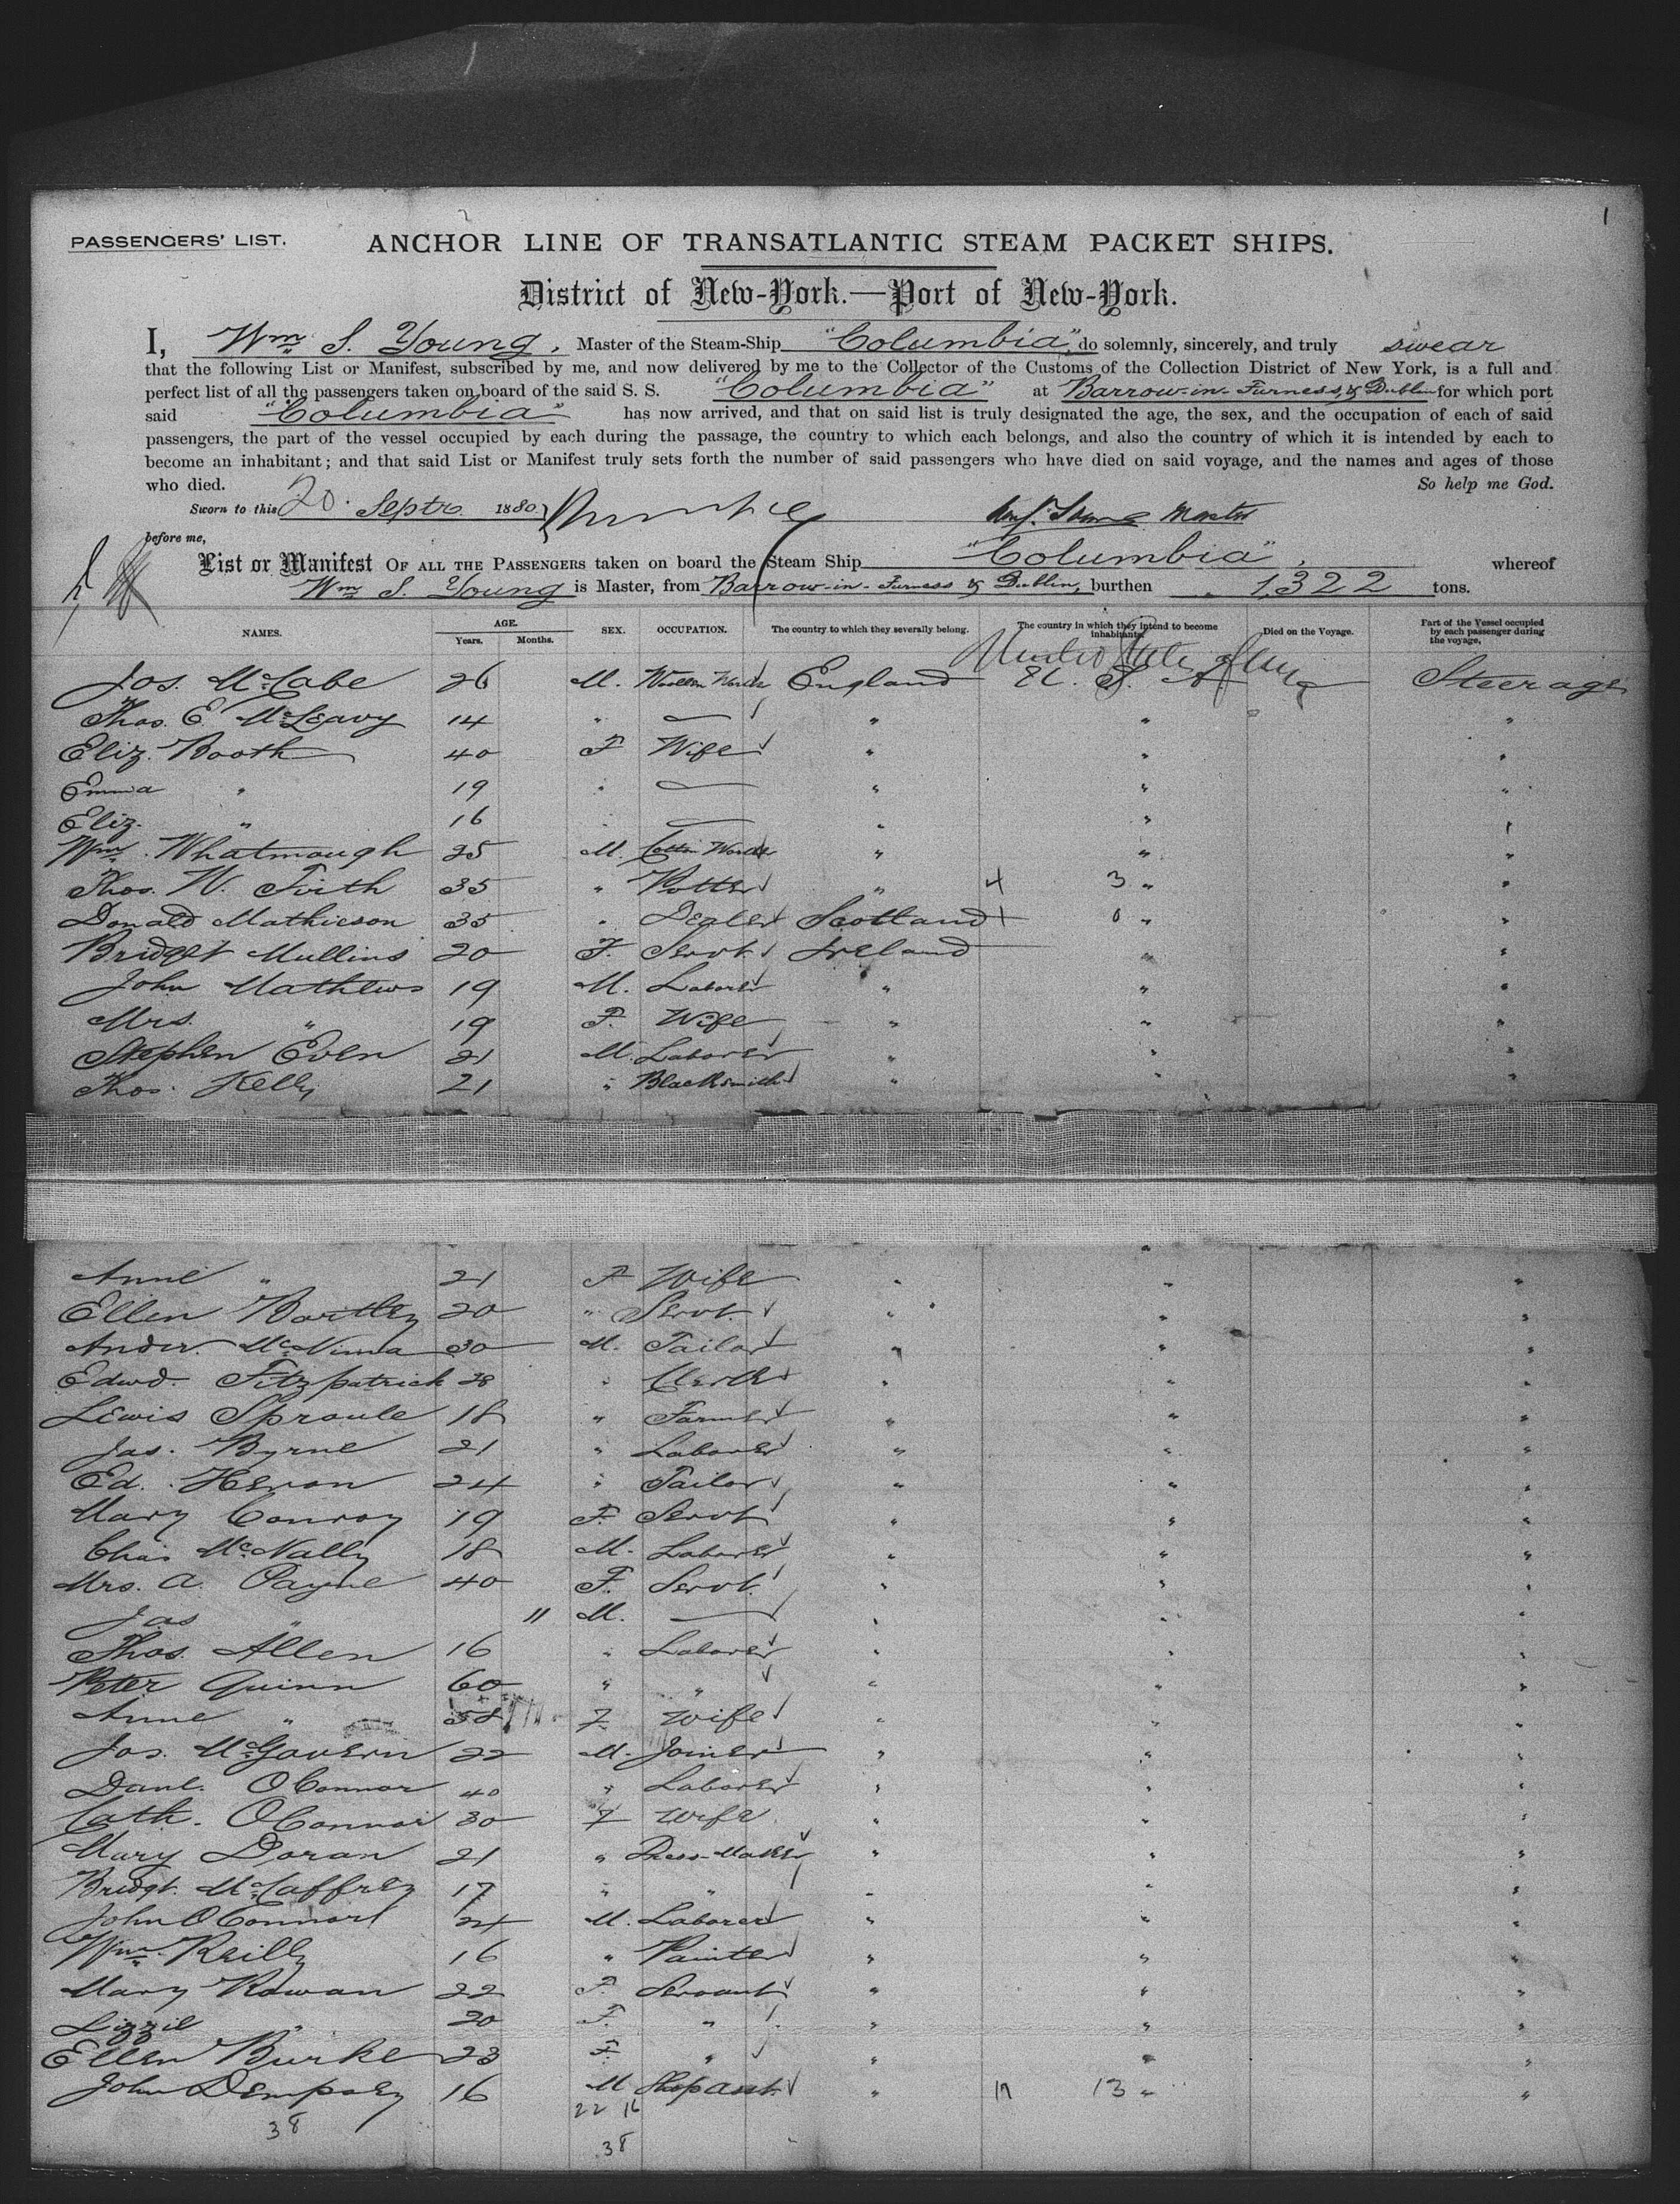 1
PASSENGERS' LIST. ANCHOR LINE OF TRANSATLANTIC STEAM PACKET SHIPS.
District of New-York.—Port of New-York.
I, Wm. S. Young, Master of the Steam-Ship "Columbia", do solemnly, sincerely, and truly swear
that the following List or Manifest, subscribed by me, and now delivered by me to the Collector of the Customs of the Collection District of New York, is a full and
perfect list of all the passengers taken on board of the said S. S. "Columbia" at Barrow-in-Furness, & Dublin for which port
said "Columbia" has now arrived, and that on said list is truly designated the age, the sex, and the occupation of each of said
passengers, the part of the vessel occupied by each during the passage, the country to which each belongs, and also the country of which it is intended by each to
become an inhabitant; and that said List or Manifest truly sets forth the number of said passengers who have died on said voyage, and the names and ages of those
who died. So help me God.
Sworn to this 20 Septr 1880
before me,
List or Manifest OF ALL THE PASSENGERS taken on board the Steam Ship "Columbia", whereof
Wm. S. Young is Master, from Barrow-in-Furness & Dublin, burthen 1,322 tons.
NAMES. AGE. Years. Months. SEX. OCCUPATION. The country to which they severally belong. The country in which they intend to become inhabitants. Died on the Voyage. Part of the Vessel occupied by each passenger during the voyage.
Jos. McCabe 26 M. England U. S. A. Steerage
Thos. E. McLeavy 14 " — " " "
Eliz. Booth 40 F Wife " " "
Emma " 19 " — " " "
Eliz. " 16 " — " "
Wm. Whatmough 25 M. " " "
Thos. W. Firth 35 " Potter " 4 3 " "
Donald Mathieson 35 " Dealer Scotland 0 " "
Bridget Mullins 20 F. Servt. Ireland " "
John Mathews 19 M. Laborer " " "
Mrs. " 19 F. Wife " " "
Stephen Even 21 M. Laborer " " "
Thos. Kelly 21 " Blacksmith " " "
Anne " 21 F Wife " " "
Ellen Bartley 20 " Servt. " " "
Andw. McNinna 30 M. Tailor " " "
Edwd. Fitzpatrick 28 " Clerk " " "
Lewis Sproule 18 " Farmer " " "
Jas. Byrne 21 " Laborer " " "
Ed. Heron 24 " Tailor " " "
Mary Conroy 19 F. Servt. " " "
Chas McNally 18 M. Laborer " " "
Mrs. A. Payne 40 F. Servt. " " "
Jas " 11 M. — " " "
Thos. Allen 16 " Laborer " " "
Peter Quinn 60 " " " " "
Anne " 58 F Wife " " "
Jas. McGovern 22 M. Joiner " " "
Danl. O'Connor 40 " Laborer " " "
Cath. O'Connor 30 F Wife " " "
Mary Doran 21 " Dress-Maker " " "
Bridgt. McCaffrey 17 " " " " "
John O'Connor 24 M. Laborer " " "
Wm. Reilly 16 " Painter " " "
Mary Rowan 22 F. Servant " " "
Lizzie " 20 F. " " " "
Ellen Burke 23 F. " " " "
John Dempsey 16 M " 17 13 " "
22 16
38 38